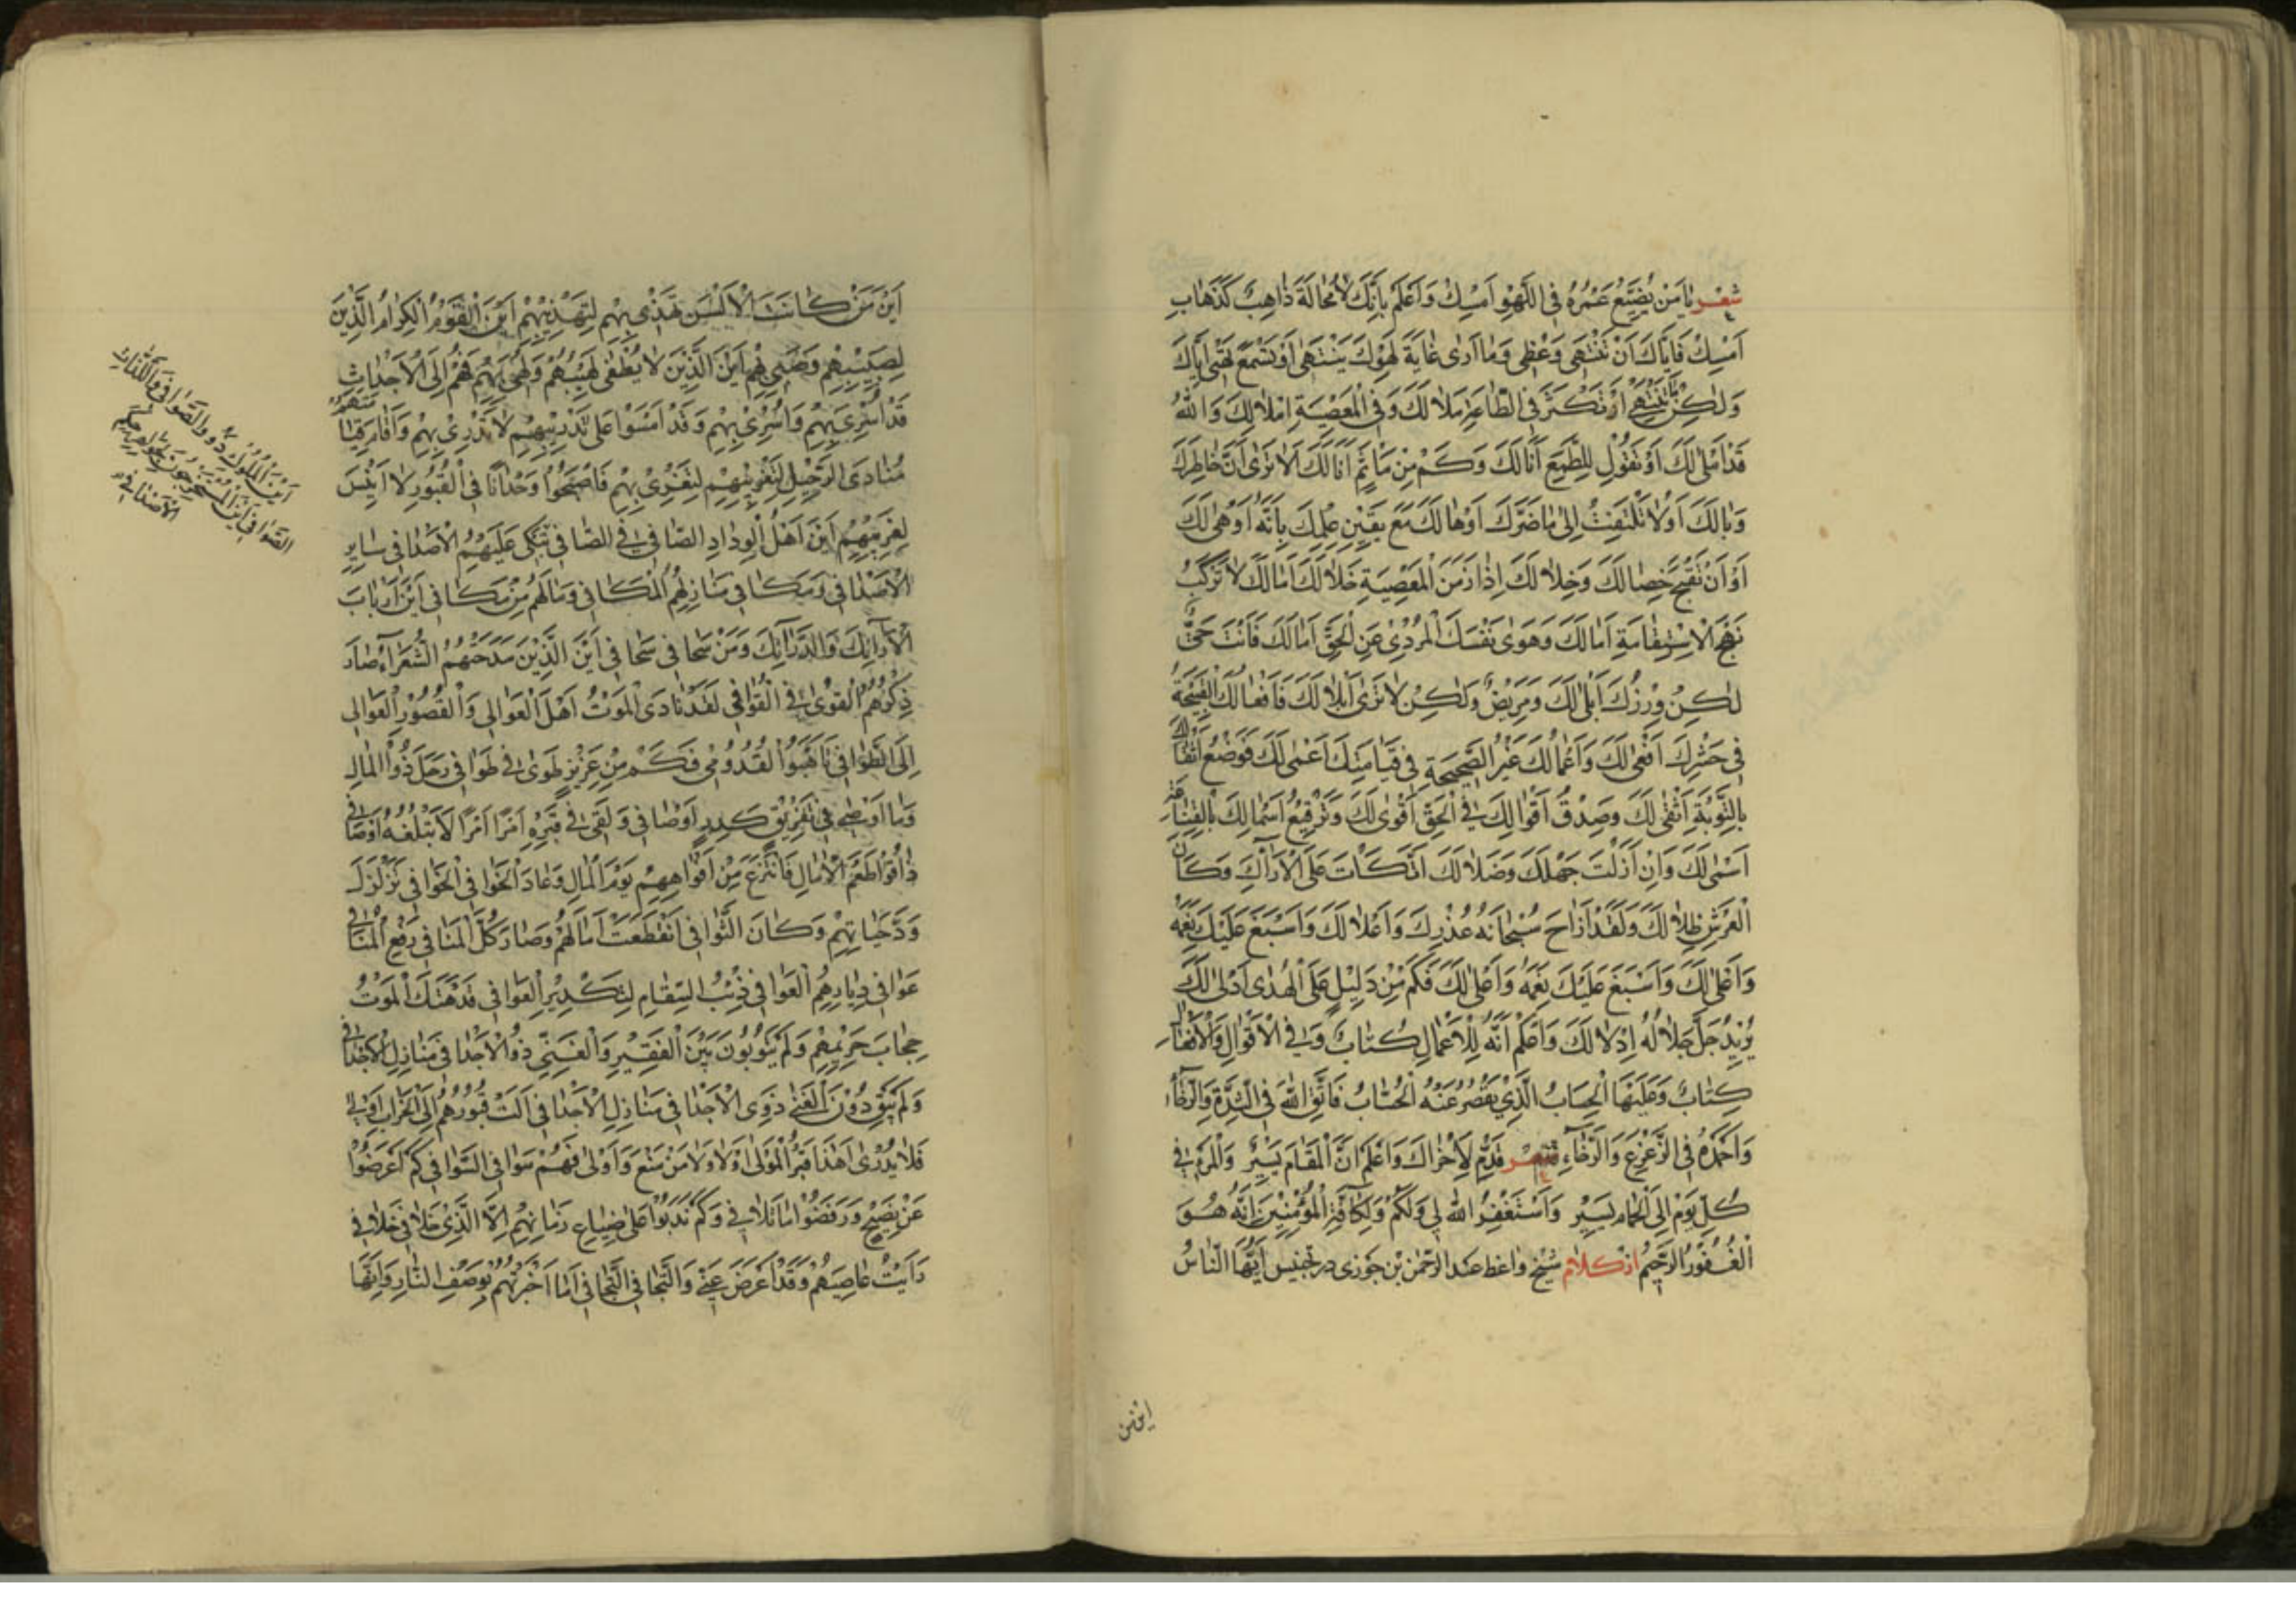 شعر يَا مَنْ يُضَيِّعُ عُمْرَهُ فِي اللَّهْوِ اَمْسِكْ وَاعْلَمْ بِاَنَّكَ لَا مَحَالَةَ ذَاهِبٌ كَذَهَابِ
اَمْسِكْ فَاِيَّاكَ اَنْ تَنْتَهِي وَعْظِي وَمَا اَرٰى غَايَةَ لَهْوِكَ يَنْتَهٰى اَوْ تَسْمَعَ اِيَّاكَ
وَلٰكِنْ فِي الطَّاعَةِ مَلَالَكَ وَفِي الْمَعْصِيَةِ اِمْلَالَكَ وَاللّٰهُ
قَدْ اَمْلٰى لَكَ اَوْ تَقُولُ لِلطَّمَعِ اَنَا لَكَ وَكَمْ مِنْ مَاْثَمٍ اَنَالَكَ اَلَا تَرٰى اَنَّ خَاطِرَكَ
وَبَالَكَ اَوْ لَا تَلْتَفِتُ اِلٰى مَا ضَرَّكَ اَوْهَالَكَ مَعَ يَقِينِ عِلْمِكَ بِاَنَّهُ اَوْهٰى لَكَ
اَوْ اَنْ تَقْبَحَ خِصَالَكَ وَخِلَالَكَ اِذَا زَمَنَ الْمَعْصِيَةِ خَلَا لَكَ اَمَا لَكَ لَا تَرْكَبُ
نَهْجَ الْاِسْتِقَامَةِ اَمَالَكَ وَهَوٰى نَفْسِكَ الْمُرْدِيْ عَنِ الْحَقِّ اَمَالَكَ فَاَنْتَ حَيٌّ
لٰكِنْ وِزْرُكَ اَبْلٰى لَكَ وَمَرِيضٌ وَلٰكِنْ لَا تَرٰى اِبْلَالَكَ فَاَفْعَالُكَ الْقَبِيْحَةُ
فِي حَشْرِكَ اَفْعٰى لَكَ وَاَعْمَالُكَ غَيْرُ الصَّحِيحَةِ فِي قِيَامَتِكَ اَعْمٰى لَكَ فَوَضْعُ اَثْقَالِكَ
بِالتَّوْبَةِ اَثْقٰى لَكَ وَصِدْقُ اَقْوَالِكَ فِي الْحَقِّ اَقْوٰى لَكَ وَتَرْقِيعُ اَسْمَالِكَ بِالْقَنَاعَةِ
اَسْمٰى لَكَ وَاِنْ اَزَلْتَ جَهْلَكَ وَضَلَالَكَ اتَّكَاْتَ عَلَى الْاَرَائِكِ وَكَانَ
الْعَرْشُ ظِلَالَكَ وَلَقَدْ اَزَاحَ سُبْحَانَهُ عُذْرَكَ وَاَعْلَالَكَ وَاَسْبَغَ عَلَيْكَ نِعَمَهُ
وَاَعْلٰى لَكَ وَاَسْبَغَ عَلَيْكَ نِعَمَهُ وَاَعْلٰى لَكَ فَكَمْ مِنْ دَلِيْلٍ عَلَى الْهُدٰى اَدْلٰى لَكَ
يُرِيدُ جَلَّ جَلَالُهُ اِدْلَالَكَ وَاعْلَمْ اَنَّهُ لِلْاَعْمَالِ كُتَّابٌ وَفِي الْاَقْوَالِ وَالْاَفْعَالِ
كِتَابٌ وَعَلَيْهَا الْحِسَابُ الَّذِيْ يَقْصُرُ عَنْهُ الْحُسَّابُ فَاتَّقِ اللّٰهَ فِي الشِّدَّةِ وَالرَّخَاءِ
وَاحْمَدْهُ فِي الزَّعْزَعِ وَالرَّخَاءِ شعر قَدِّمْ لِاُخْرَاكَ وَاعْلَمْ اَنَّ الْمَقَامَ يَسِيْرٌ وَالْمَرْءُ فِي
كُلِّ يَوْمٍ اِلَى الْحِمَامِ يَسِيْرُ وَاَسْتَغْفِرُ اللّٰهَ لِي وَلَكُمْ وَلِكَافَّةِ الْمُؤْمِنِيْنَ اِنَّهُ هُوَ
الْغَفُوْرُ الرَّحِيْمُ از كلام شيخ واعظ عبد الرحمن بن جوزى در تجنيس اَيُّهَا النَّاسُ
اين من
اَيْنَ مَنْ كَانَتِ الْاَلْسُنُ تَهْذِيْ بِهِمْ لِتَهْذِيْبِهِمْ اَيْنَ الْقَوْمُ الْكِرَامُ الَّذِيْنَ
اَيْنَ الَّذِيْنَ لَا يُطْفٰى لَهِيْبُهُمْ اِلَى الْاَجْدَاثِ
قَدْ اُسْرِيَ بِهِمْ وَاُسْرِيْ بِهِمْ وَقَدْ اَمْسَوْا عَلٰى تَدْرِيْبِهِمْ لَا تَدْرِيْ بِهِمْ وَاَقَامَ
مُنَادِي الرَّحِيْلِ لِتَغْرِيْبِهِمْ لِتَغْرِيْ بِهِمْ فَاَصْبَحُوْا وَحْدَانًا فِي الْقُبُوْرِ لَا اَنِيْسَ
لِغَرِيْبِهِمْ اَيْنَ اَهْلُ الْوِدَادِ الصَّافِيْ فِي الصَّافِيْ تَبْكِيْ عَلَيْهِمُ الْاَصْدَافِيْ سَايِرِ
الْاَصْدَافِيْ وَمَكَافِيْ مَنَازِلِهِمُ الْمَكَافِيْ وَمَا لَهُمْ مِنْ مَكَافِيْ اَيْنَ اَرْبَابُ
الْاَرَائِكِ وَالدَّرَانِكِ وَمَنْ سَحَافِيْ سَحَافِيْ اَيْنَ الَّذِيْنَ مَدَحَهُمُ الشُّعَرَاءُ صَارَ
ذِكْرُهُمُ الْقَوٰى فِي الْقَوَافِيْ لَقَدْ نَادَى الْمَوْتُ اَهْلَ الْعَوَالِيْ وَالْقُصُوْرِ الْعَوَالِيْ
اِلَى الطَّوَافِيْ تَاَهَّبُوْا لِقُدُوْمِيْ فَكَمْ مِنْ عَزِيْزٍ لَهْوٰى فِي لَهْوَافِيْ رَحَلَ ذُو الْمَالِ
وَمَا اَوْصٰى فِيْ تَفْرِيْقِ كَدِرٍ اَوْصَافِيْ وَلَقِيَ فِي قَبْرِهِ اَمْرًا اَمَرًّا لَا يَبْلُغُهُ اَوْصَافِيْ
ذَاقُوْا طَعْمَ الْاٰمَالِ فَانْتُزِعَ مِنْ اَفْوَاهِهِمْ يَوْمَ الْمَالِ وَعَادَ الْخَوَافِيْ الْخَوَافِيْ تَزَلْزَلَ
وُدُّ حَيَاتِهِمْ وَكَانَ الثَّوَافِيْ انْقَطَعَتْ اٰمَالُهُمْ وَصَارَ كُلُّ الْمَنَافِيْ رَفْعِ الْمَنَافِيْ
عَوَافِيْ دِيَارِهِمُ الْعَوَافِيْ ذِئْبُ السِّقَامِ لِتَكْدِيْرِ الْعَوَافِيْ قَدْ هَتَكَ الْمَوْتُ
حِجَابَ حَرِيْمِهِمْ وَلَمْ بَيْنَ الْفَقِيْرِ وَالْغَنِيِّ ذُو الْاَجْدَافِيْ مَنَازِلِ الْاَجْدَافِيْ
وَلَمْ يَبْقَ دُوْنَ الْغِنٰى ذَوِي الْاَجْدَافِيْ مَنَازِلِ الْاَجْدَافِيْ اٰلَتْ قُبُوْرُهُمْ اِلَى الْخَرَابِ
فَلَا يُدْرٰى اَهٰذَا قَبْرُ الْمَوْلٰى اَوْ لَا وَلَا مَنْ مَنَعَ وَاَوْلٰى فَهُمْ سَوَافِيْ السَّوَافِيْ كَمْ اَعْرَضُوْا
عَنْ نَصِيْحٍ وَرَفَضُوْا مَا تَلَافِيْ وَكَمْ نُدِبُوْا عَلٰى ضِيَاعِ زَمَانِهِمْ اِلَّا الَّذِيْ خَلَا فِيْ خَلَافِيْ
رَاَيْتُ عَاصِيَهُمْ وَقَدْ اَعْرَضَ عَنِّيْ وَالْتَجَافِيْ الْتَجَافِيْ اَمَا اَخْبَرْتُهُمْ بِوَصْفِ النَّارِ وَاِنَّهَا
اَيْنَ الْمُلُوْكُ ذَوُو الصَّوَافِيْ